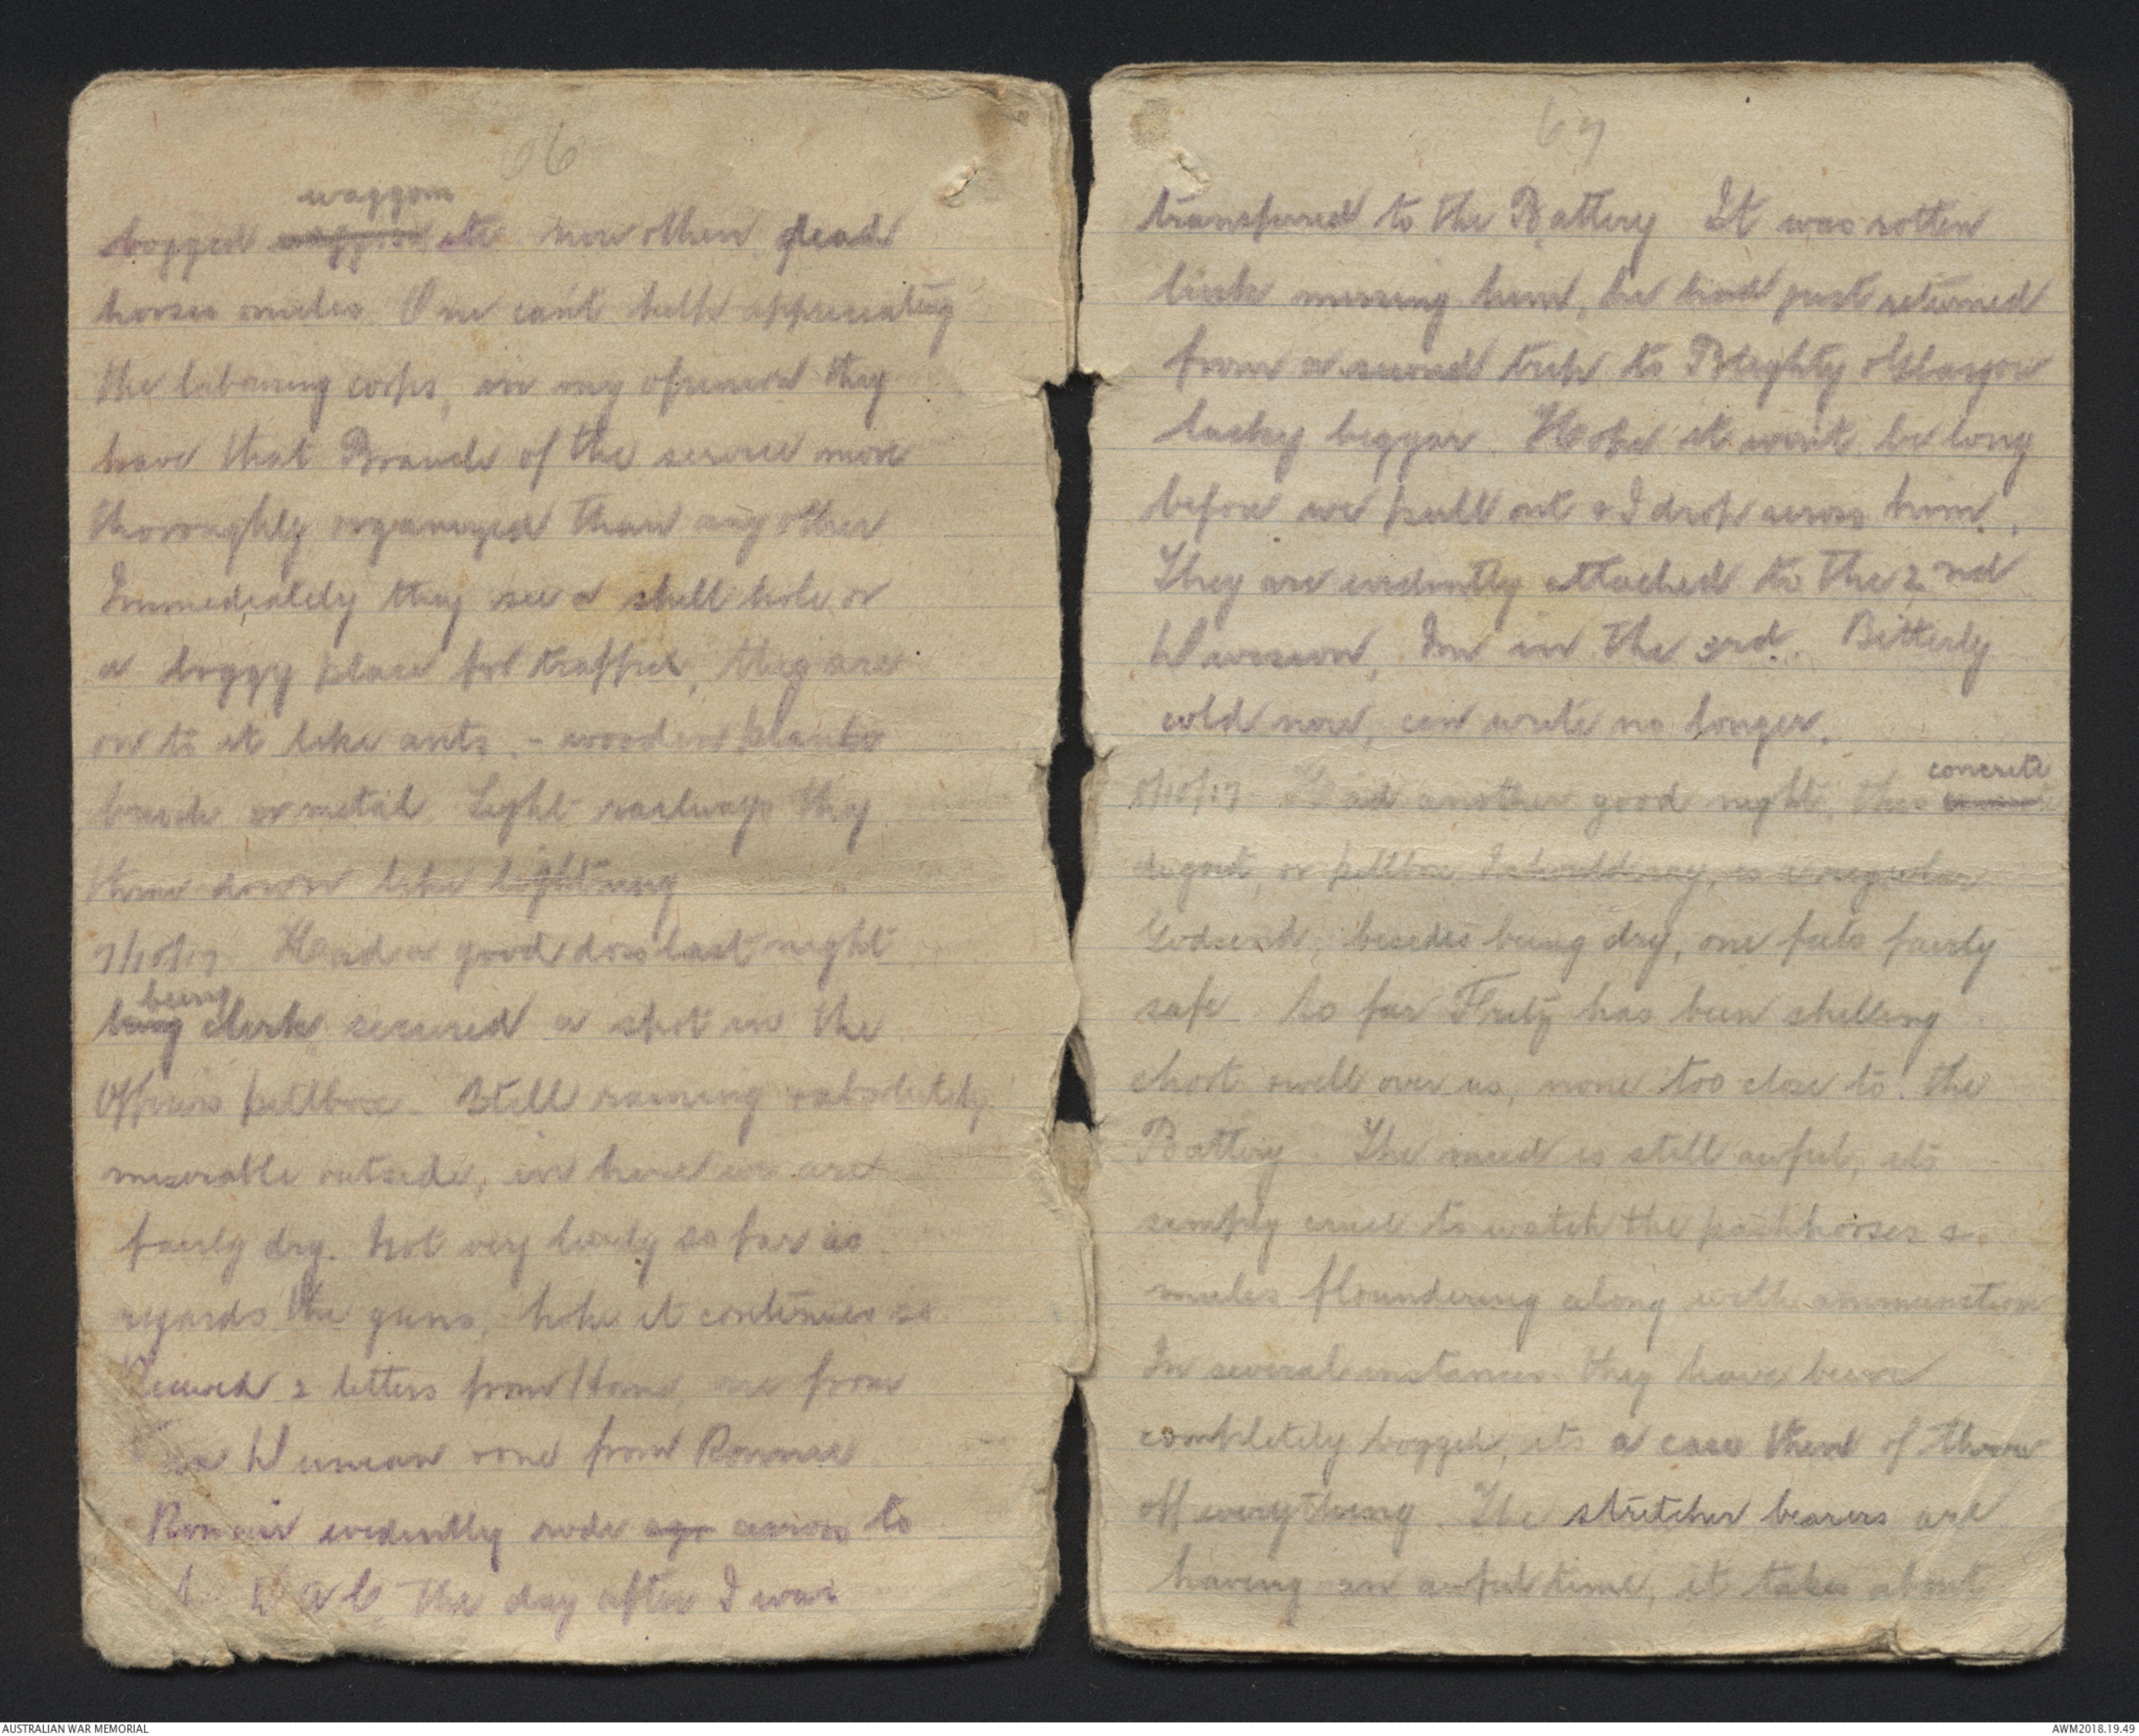 66
waggons
bogged waggons etc now & then dead
horses mules. One can't help appreciating
the labouring corps, in my opinion they
have that Branch of the service more
thoroughly organized than any other
Immediately they see a shell hole or
a boggy place for traffic, they are
on to it like ants, - wooden planks
brick or metal. Light railways they
throw down like lightning
7/10/17. Had a good doss last night
being
being clerk secured a spot in the
Officers pillbox. Still raining & absolutely
miserable outside, in here we are
fairly dry. Not very lively so far as
regards the guns, hope it continues so
Received 2 letters from Home, one from
Duncan & one from Ronnie
Ronnie evidently rode ago across to
D A C the day after I was
67
transferred to the Battery It was rotten
luck missing him, he had just returned
from a second trip to Blighty & Glasgow
lucky beggar. Hope it wont be long
before we pull out & I drop across him.
They are evidently attached to the 2nd
Division, Im in the 3rd. Bitterly
cold now, can write no longer.
concrete
8/10/17 Had another good night, this
dugout, or pillbox I should say, is a regular
Godsend, besides being dry, one feels fairly
safe. So far Fritz has been shelling
short & well over us, none too close to the
Battery. The mud is still awful, its
simply cruel to watch the packhorses &
mules floundering along with ammunition
In several instances they have been
completely bogged, its a case then of throw
off everything. The stretcher bearers are
having an awful time, it takes about
AUSTRALIAN WAR MEMORIAL
AWM2018.19.49